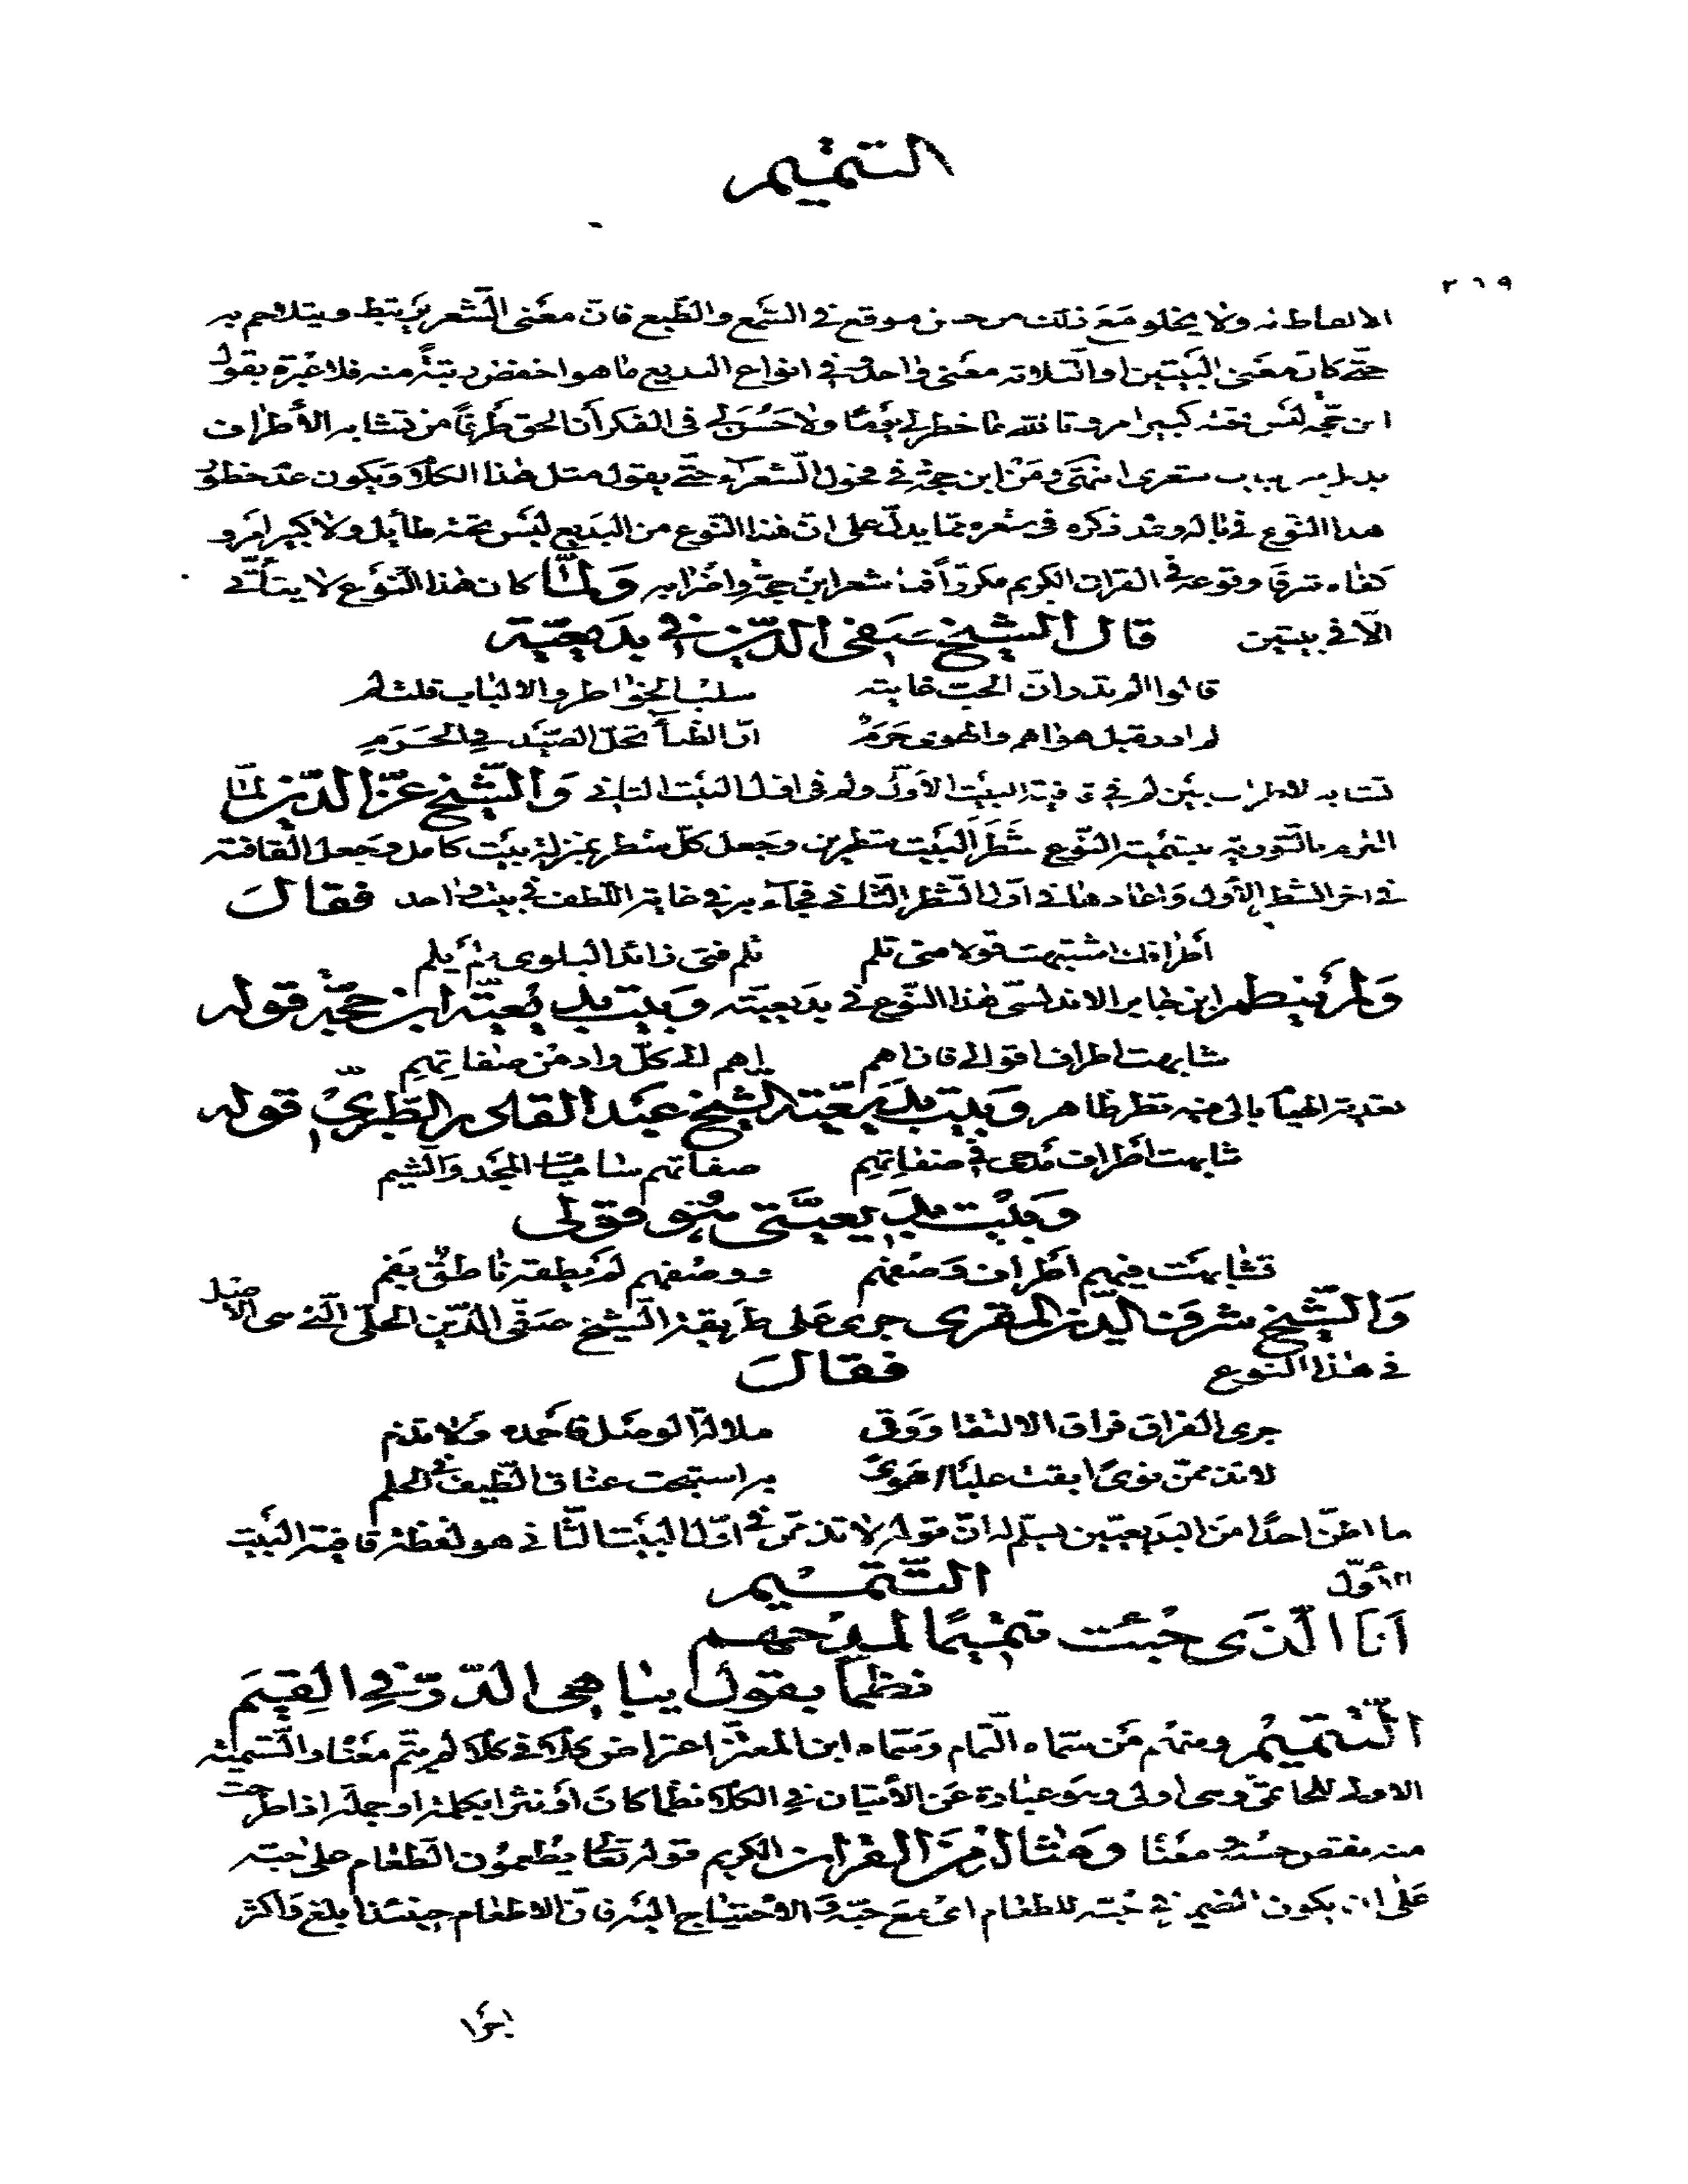 التتميم
٢٦٩
ولا يخلو مع ذلك من حسن موقع في السمع والطبع فان معنى الشعر يرتبط ويتلاحم به
حتى كان معنى البيتين او الثلاثة معنى واحد وفي انواع البديع ما هو اخفض رتبة منه فلا عبرة بقول
ابن حجة ليس تحته كبير امر وتالله ما خطر لي يوما ولا حسن لي في الفكر أن الحق طرفا من تشابه الأطراف
شعري انتهى ومن ابن حجة في فحول الشعراء حتى يقول مثل هذا الكلام ويكون عدم خطور
هذا النوع في باله وعند ذكره في شعره مما يدل على ان هذا النوع من البديع ليس تحته طايل ولا كبير امر و
كفاه شرفا وقوعه في القران الكريم مكررا فما شعر ابن حجة واضرابه ولما كان هذا النوع لا يتأتى
الا في بيتين قال الشيخ صفي الدين في بديعيته
قالوا الم تدر ان الحب غايته سلب الخواطر والالباب قلت لم
لم ادر قبل هواهم والهوى حرم ان الظباء تحل الصيد في الحرم
تشابه الاطراف بين لم في قافية البيت الأول ولم في اول البيت الثاني والشيخ عز الدين لما
التزم بالتورية بتسمية النوع شطر البيت شطرين وجعل كل شطر بمنزلة بيت كامل وجعل القافية
في اخر الشطر الأول واعادها في اول الشطر الثاني فجاء به في غاية اللطف في بيت واحد فقال
أطرافك اشتبهت قولا متى تلم تلم فتى زائد البلوى فلم يلم
ولم ينظم ابن جابر الاندلسي هذا النوع في بديعيته وبيت بديعية ابن حجة قوله
شابهت اطراف اقوالي فان اهم اهم الى كل واد من صفاتهم
بالى فيه نظر ظاهر وبيت بديعية الشيخ عبد القادر الطبري قوله
شابهت أطراف مدحي في صفاتهم صفاتهم المجد والشيم
وبيت بديعيتي هو قولي
تشابهت فيهم أطراف وصفهم ووصفهم لم يطقه ناطق بفم
والشيخ شرف الدين المقرى جرى على طريقة الشيخ صفي الدين الحلي التي هي الاصل
في هذا النوع فقال
جرى الفراق فراق الالتقا ووقى ملالة الوصل فاحمده ولا تذم
لا تذممن نوى ابقت علينا هوى به استبحت عناق الطيف في الحلم
ما اظن احدا من البديعيين يسلم له ان قوله لا تذممن في اول البيت الثاني هو لفظة قافية البيت
الأول التتميم
انا الذي جئت تتميما لمدحهم
نظما بقول يباهي الدر في القيم
التتميم ومنهم من سماه التمام وسماه ابن المعتز اعتراض كلام في كلام لم يتم معناه والتسمية
الاولى للحاتمي وهي اولى وهو عبارة عن الأتيان في الكلام نظما كان أو نثرا بكلمة او جملة اذا طرحت
منه نقص حسنه ومعناه ومثاله من القران الكريم قوله تعالى يطعمون الطعام على حبه
على ان يكون الضمير في حبه للطعام اى مع حبه والاحتياج اليه فان الاطعام حينئذ ابلغ واكثر
اجرا